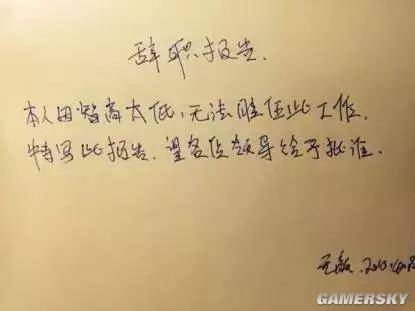 辞职报告.
本人因智商太低,无法胜任此工作.
特写此报告.望各位领导给予批准.
GAMERSKY